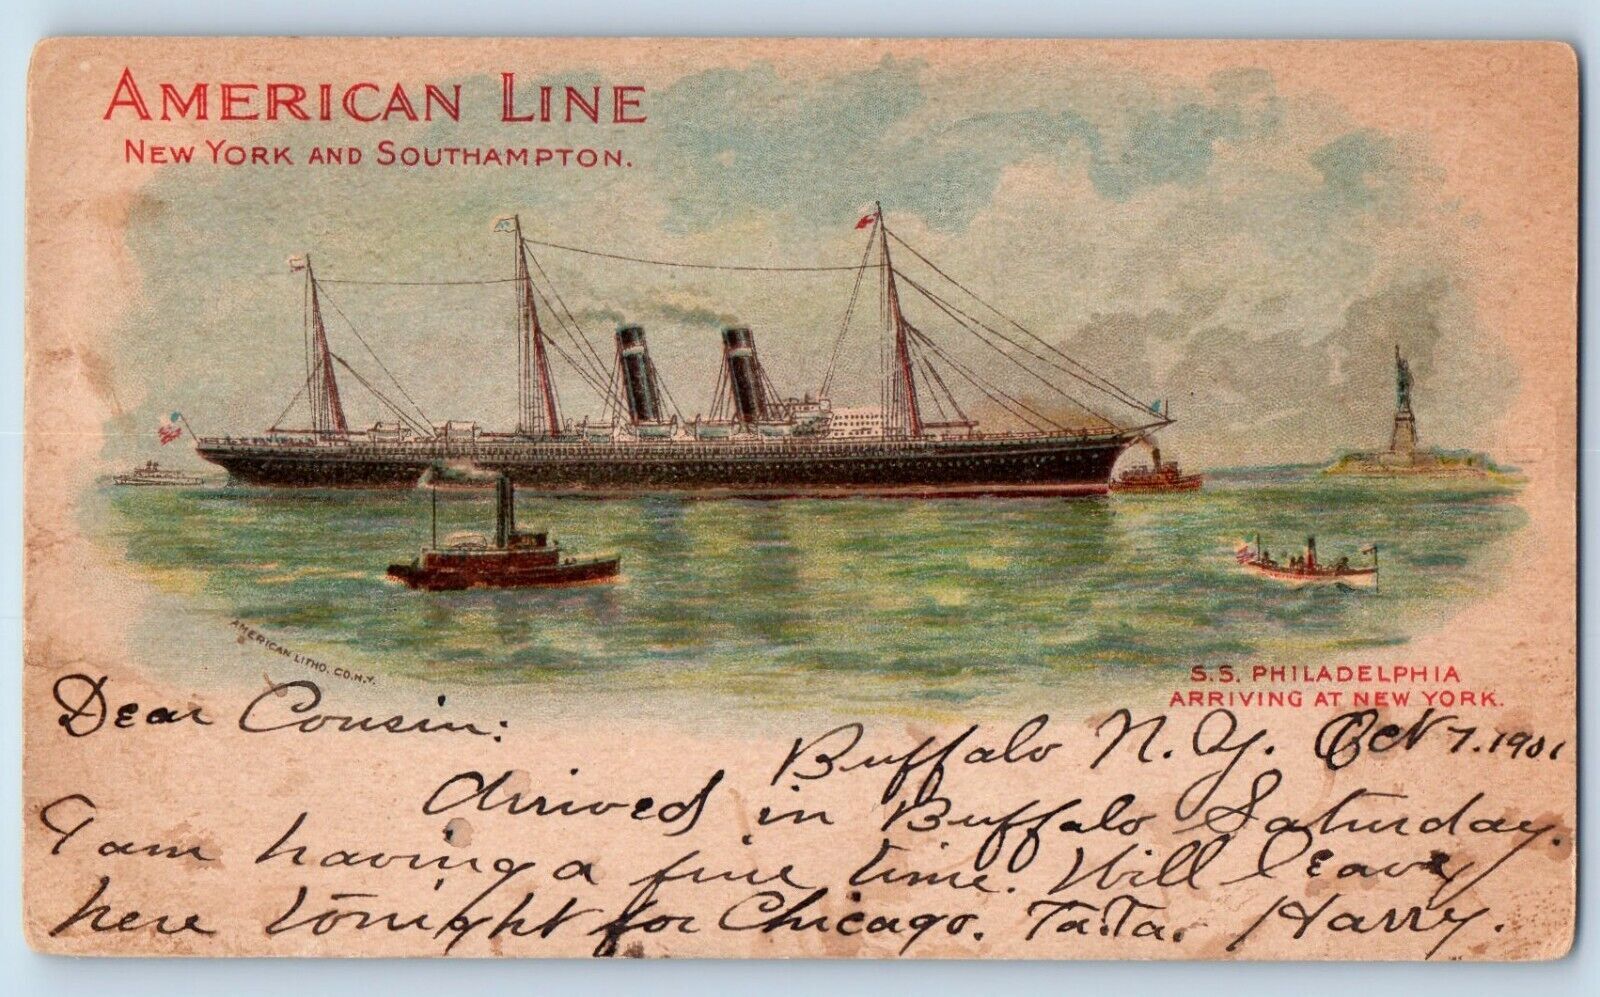 AMERICAN LINE
NEW YORK AND SOUTHAMPTON.
AMERICAN LITHO. CO. N.Y.
S.S. PHILADELPHIA
ARRIVING AT NEW YORK.
Dear Cousin:
Buffalo N. Y. Oct 7. 1901
Arrived in Buffalo Saturday.
I am having a fine time. Will leave
here tonight for Chicago. Ta.Ta. Harry.